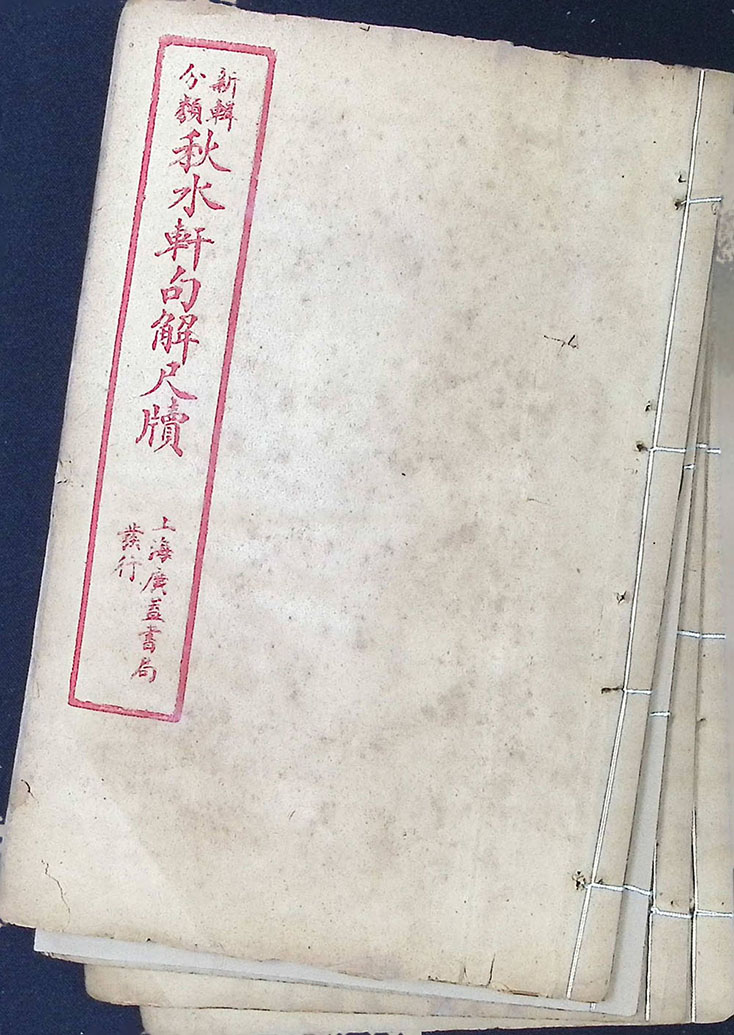 新輯
分類
秋水軒句解尺牘
上海廣益書局
發行